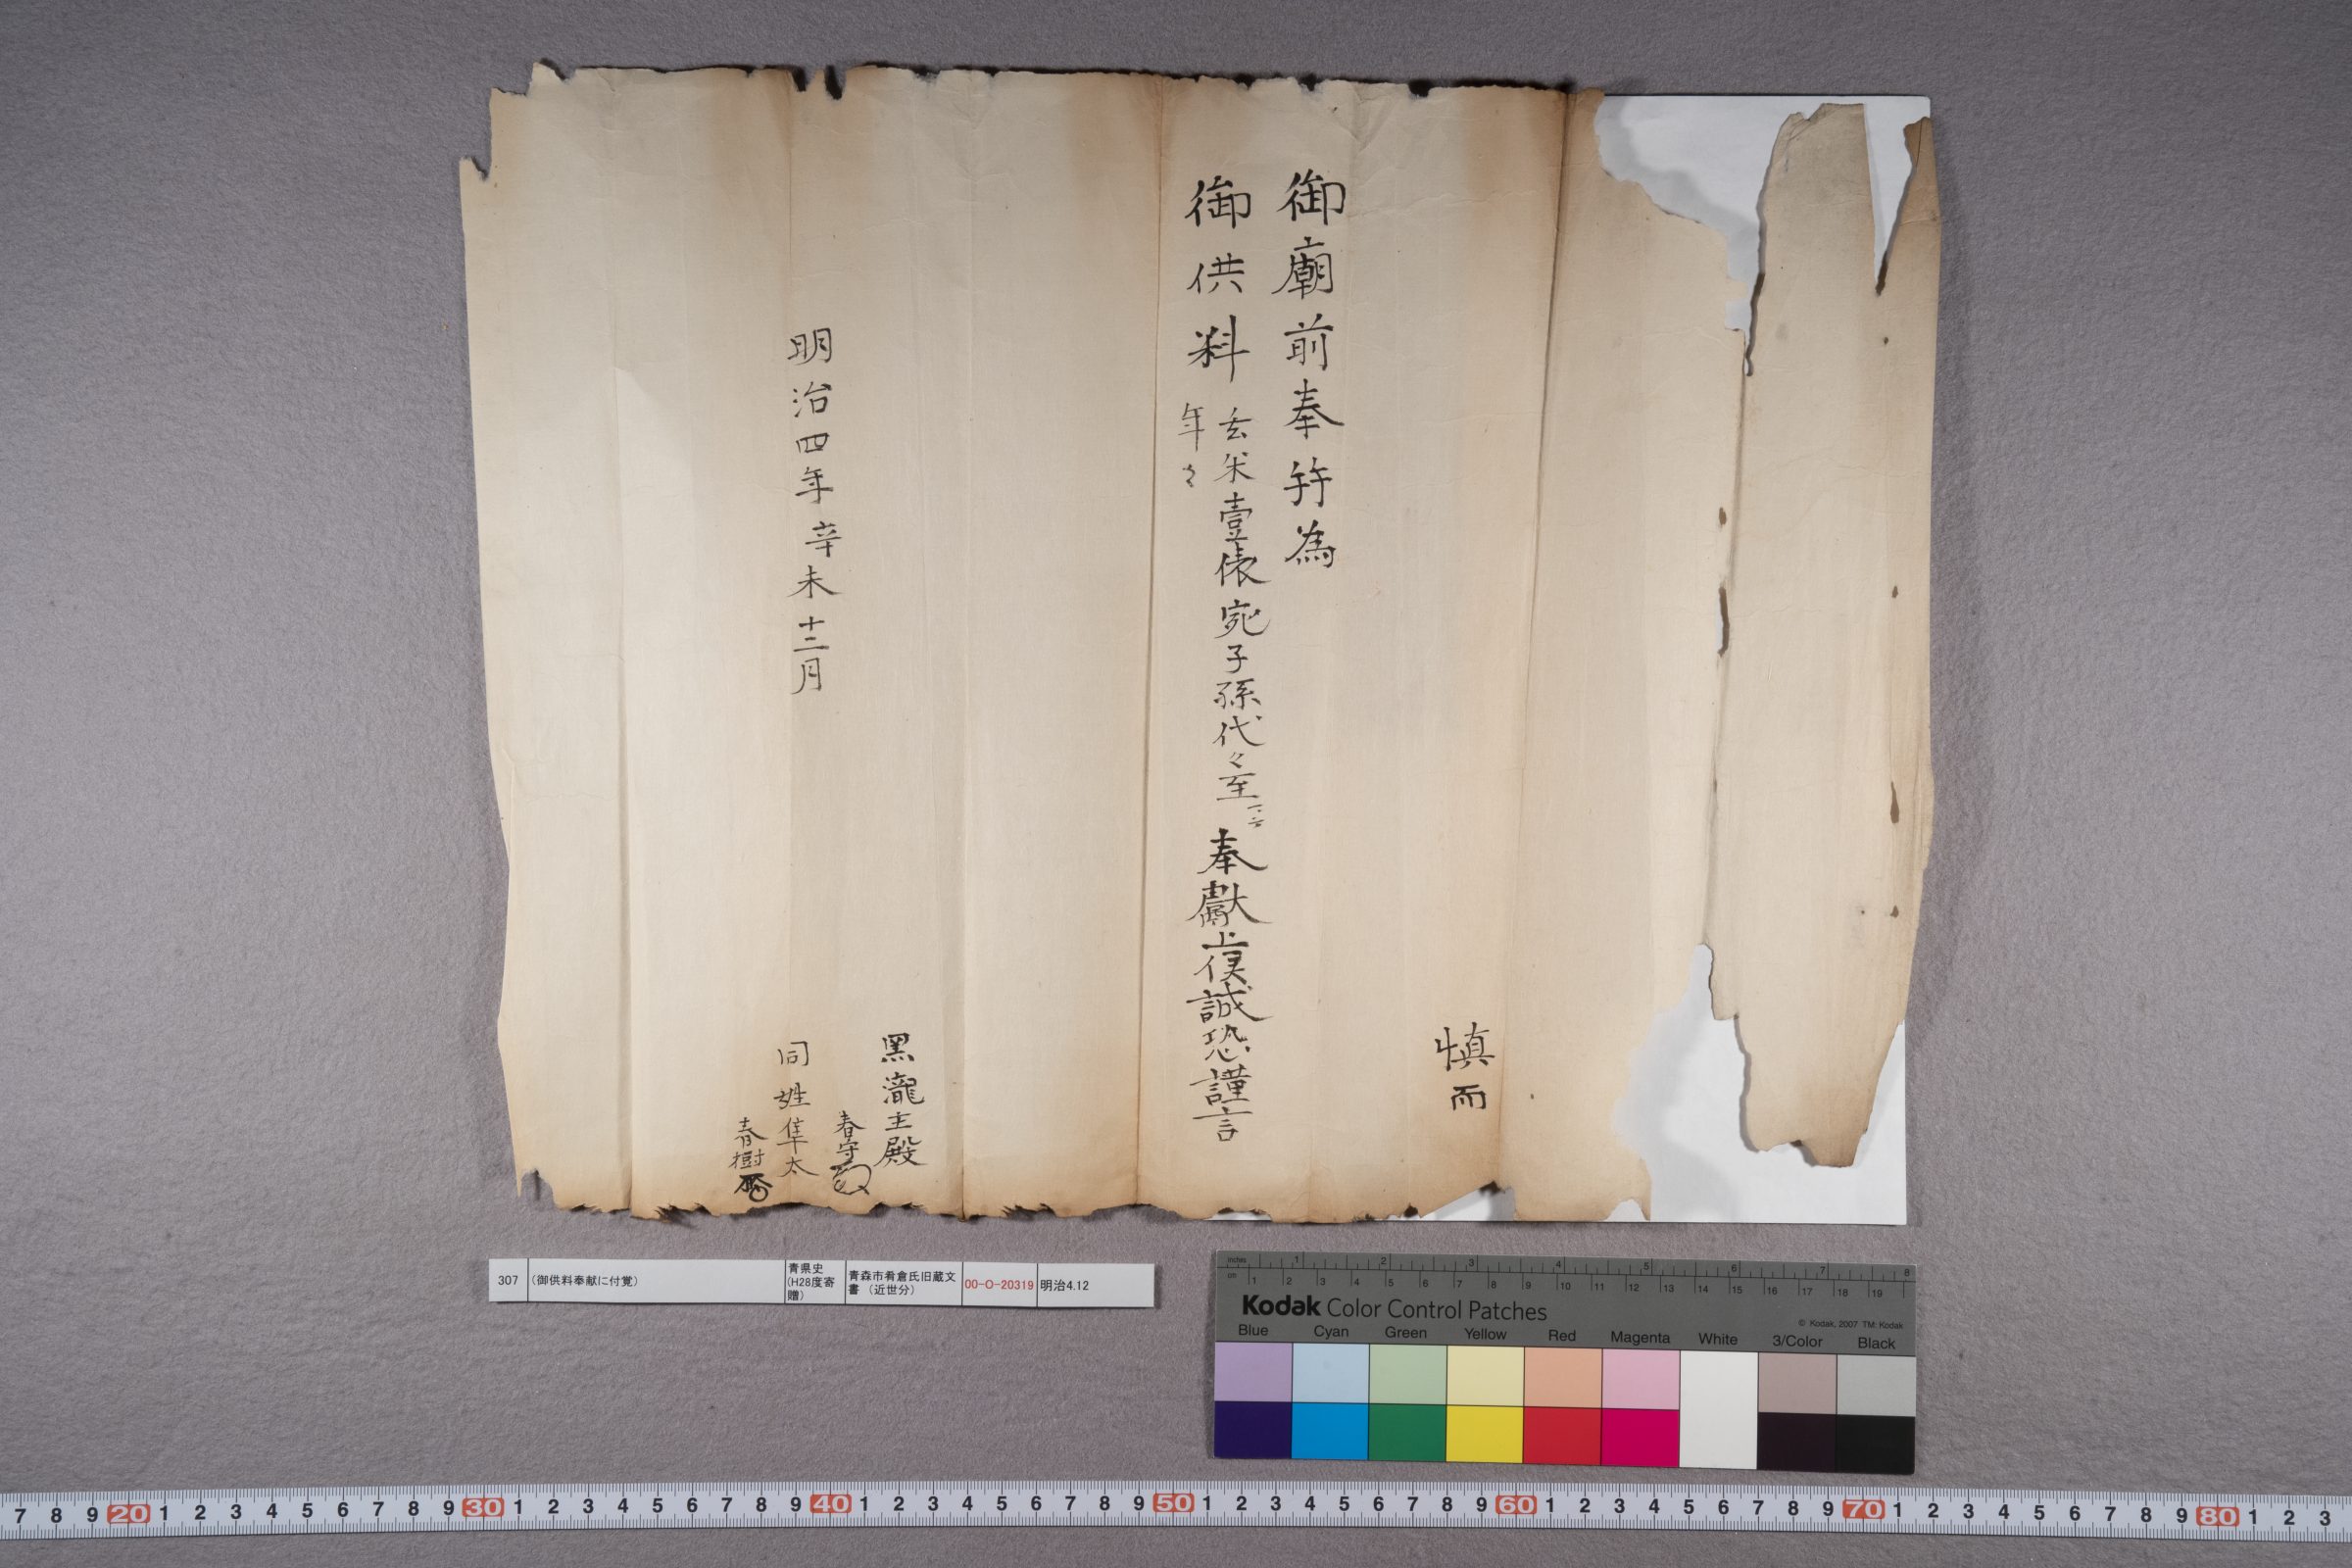 慎而
御廟前奉
為
御供料
玄米壹俵宛子孫代々至
年々
奉獻上候誠恐謹言
黑瀧主殿
春守
明治四年辛未十二月
同姓隼太
春樹
307 (御供料奉献に付覚) 青県史(H28度寄贈) 青森市肴倉氏旧蔵文書 (近世分) 00-O-20319 明治4.12
inches 1 2 3 4 5 6 7 8
cm 1 2 3 4 5 6 7 8 9 10 11 12 13 14 15 16 17 18 19
Kodak Color Control Patches
© Kodak, 2007 TM: Kodak
Blue Cyan Green Yellow Red Magenta White 3/Color Black
7 8 9 20 1 2 3 4 5 6 7 8 9 30 1 2 3 4 5 6 7 8 9 40 1 2 3 4 5 6 7 8 9 50 1 2 3 4 5 6 7 8 9 60 1 2 3 4 5 6 7 8 9 70 1 2 3 4 5 6 7 8 9 80 1 2 3